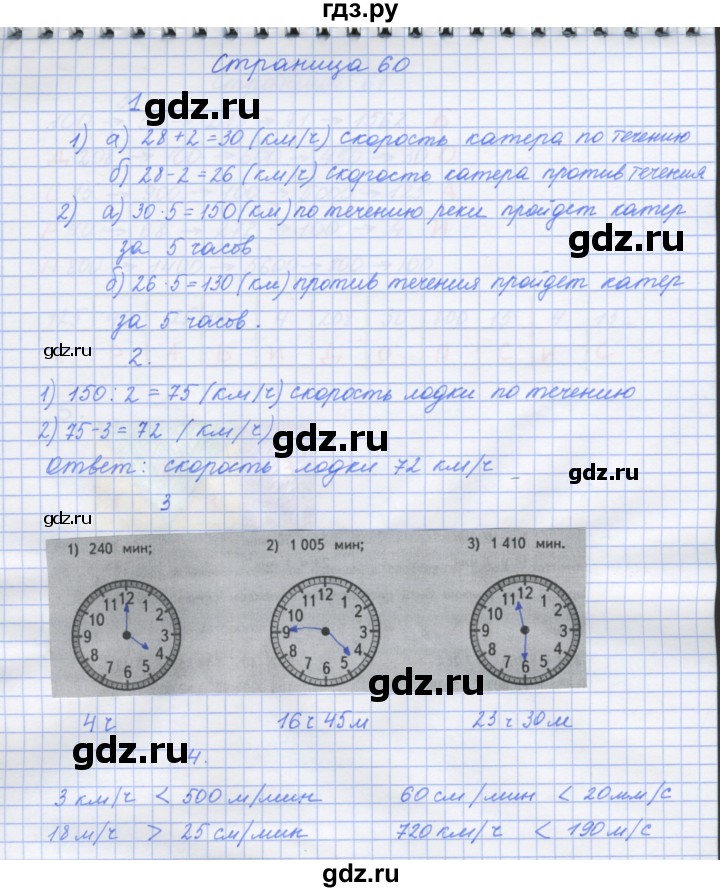 гдз.ру
Страница 60
1
gdz.ru
1) а) 28+2=30 (км/ч) скорость катера по течению
б) 28-2=26 (км/ч) скорость катера против течения
2) а) 30·5=150 (км) по течению реки пройдет катер
за 5 часов
gdz.ru
б) 26·5=130 (км) против течения пройдет катер
за 5 часов.
gdz.ru
2.
1) 150:2=75 (км/ч) скорость лодки по течению
2) 75-3=72 (км/ч)
gdz.ru
Ответ: скорость лодки 72 км/ч
gdz.ru
3
gdz.ru
1) 240 мин; 2) 1 005 мин; 3) 1 410 мин.
12 1 2 3 4 5 6 7 8 9 10 11
12 1 2 3 4 5 6 7 8 9 10 11
12 1 2 3 4 5 6 7 8 9 10 11
gdz.ru
4ч 16ч 45м 23ч 30м
gdz.ru
4.
3 км/ч < 500 м/мин 60 см/мин < 20мм/с
18 м/ч > 25 см/мин 720 км/ч < 190 м/с
gdz.ru
gdz.ru
gdz.ru